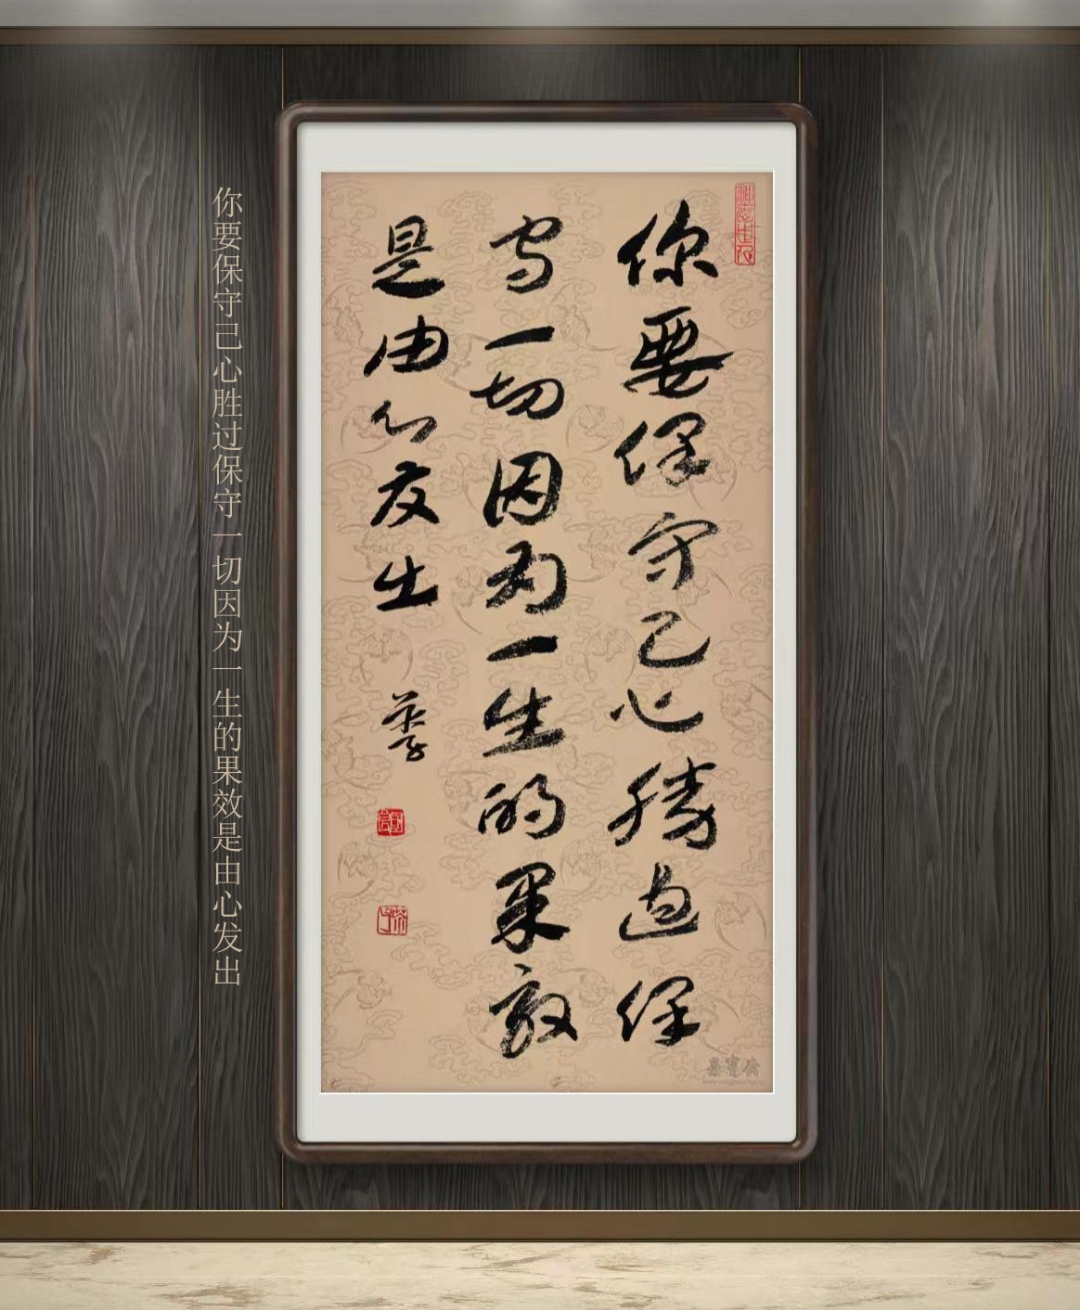 你要保守己心勝過保
守一切因为一生的果效
是由心发出
你要保守己心胜过保守一切因为一生的果效是由心发出